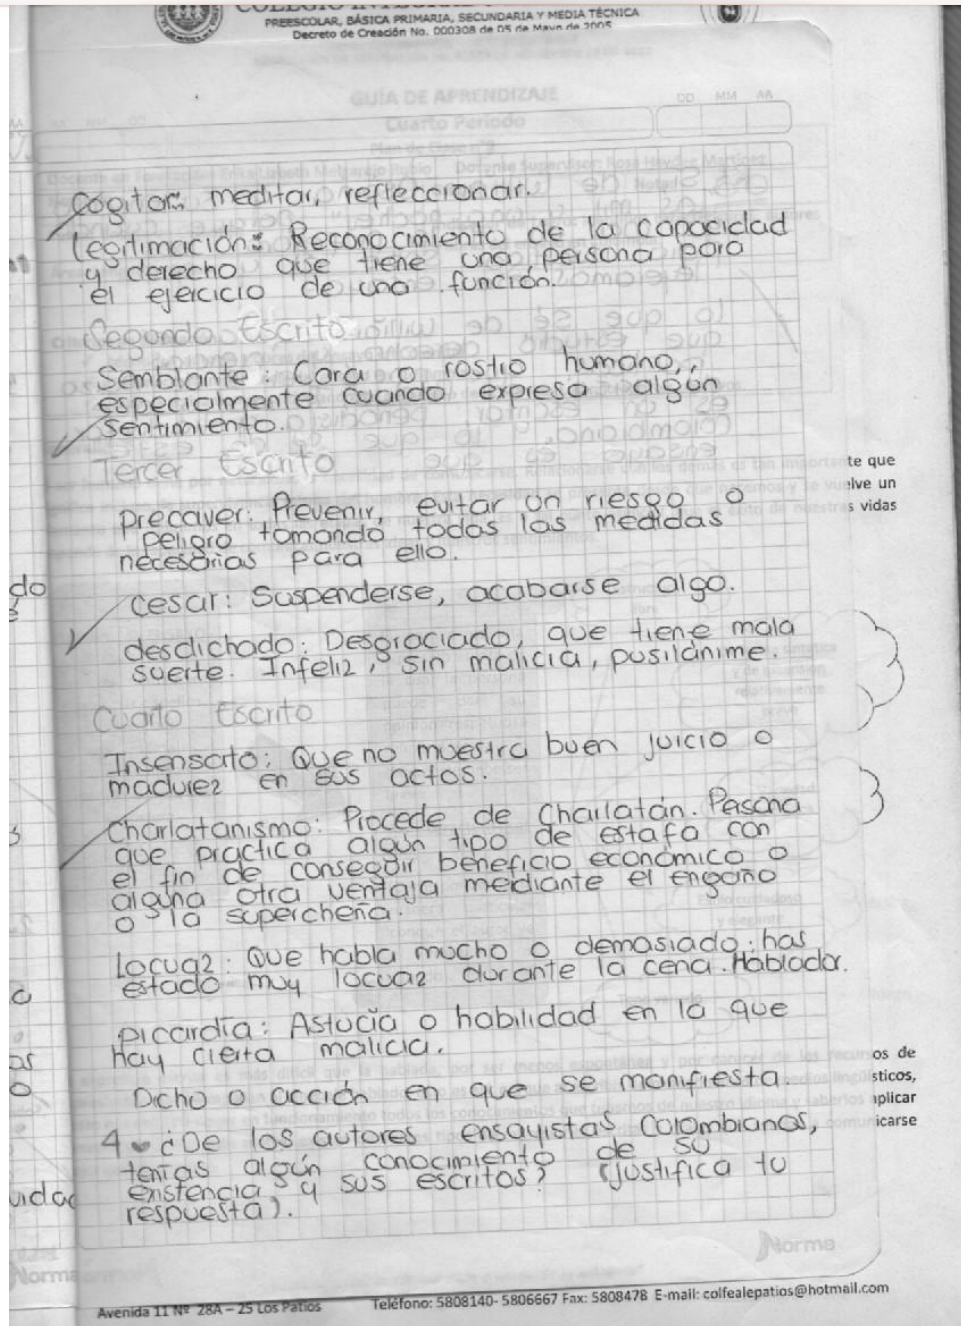 PREESCOLAR, BÁSICA PRIMARIA, SECUNDARIA Y MEDIA TÉCNICA
Decreto de Creación No. 000308 de 05 de Mayo de 2005
GUÍA DE APRENDIZAJE
DD MM AA
Cuarto Periodo
Cogitar: meditar, refleccionar.
Legitimación: Reconocimiento de la capacidad
y derecho que tiene una persona para
el ejercicio de una función.
Segundo Escrito
Semblante: Cara o rostro humano,
especialmente cuando expresa algún
sentimiento.
Tercer Escrito
te que
elve un
s vidas
precaver: Prevenir, evitar un riesgo o
peligro tomando todas las medidas
necesarias para ello.
do
cesar: Suspenderse, acabarse algo.
desdichado: Desgraciado, que tiene mala
suerte. Infeliz, sin malicia, pusilánime.
Cuarto Escrito
Insensato: Que no muestra buen juicio o
madurez en sus actos.
Charlatanismo: Procede de Charlatán. Pesona
que practica algún tipo de estafa con
el fin de conseguir beneficio económico o
alguna otra ventaja mediante el engaño
o la superchería.
Locuaz: Que habla mucho o demasiado: has
estado muy locuaz durante la cena. Hablador.
picardía: Astucia o habilidad en la que
Hay cierta malicia.
os de
Dicho o acción en que se manifiesta.
sticos,
aplicar
icarse
4. ¿De los autores ensayistas Colombianos,
tenías algún conocimiento de su
existencia y sus escritos? (justifica tu
respuesta).
vidad
Norma
Norma
Avenida 11 Nº 28A – 25 Los Patios Teléfono: 5808140- 5806667 Fax: 5808478 E-mail: colfealepatios@hotmail.com